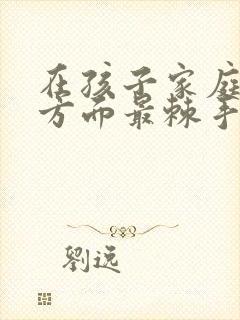 在孩子家庭
方面最棘手
劉遠